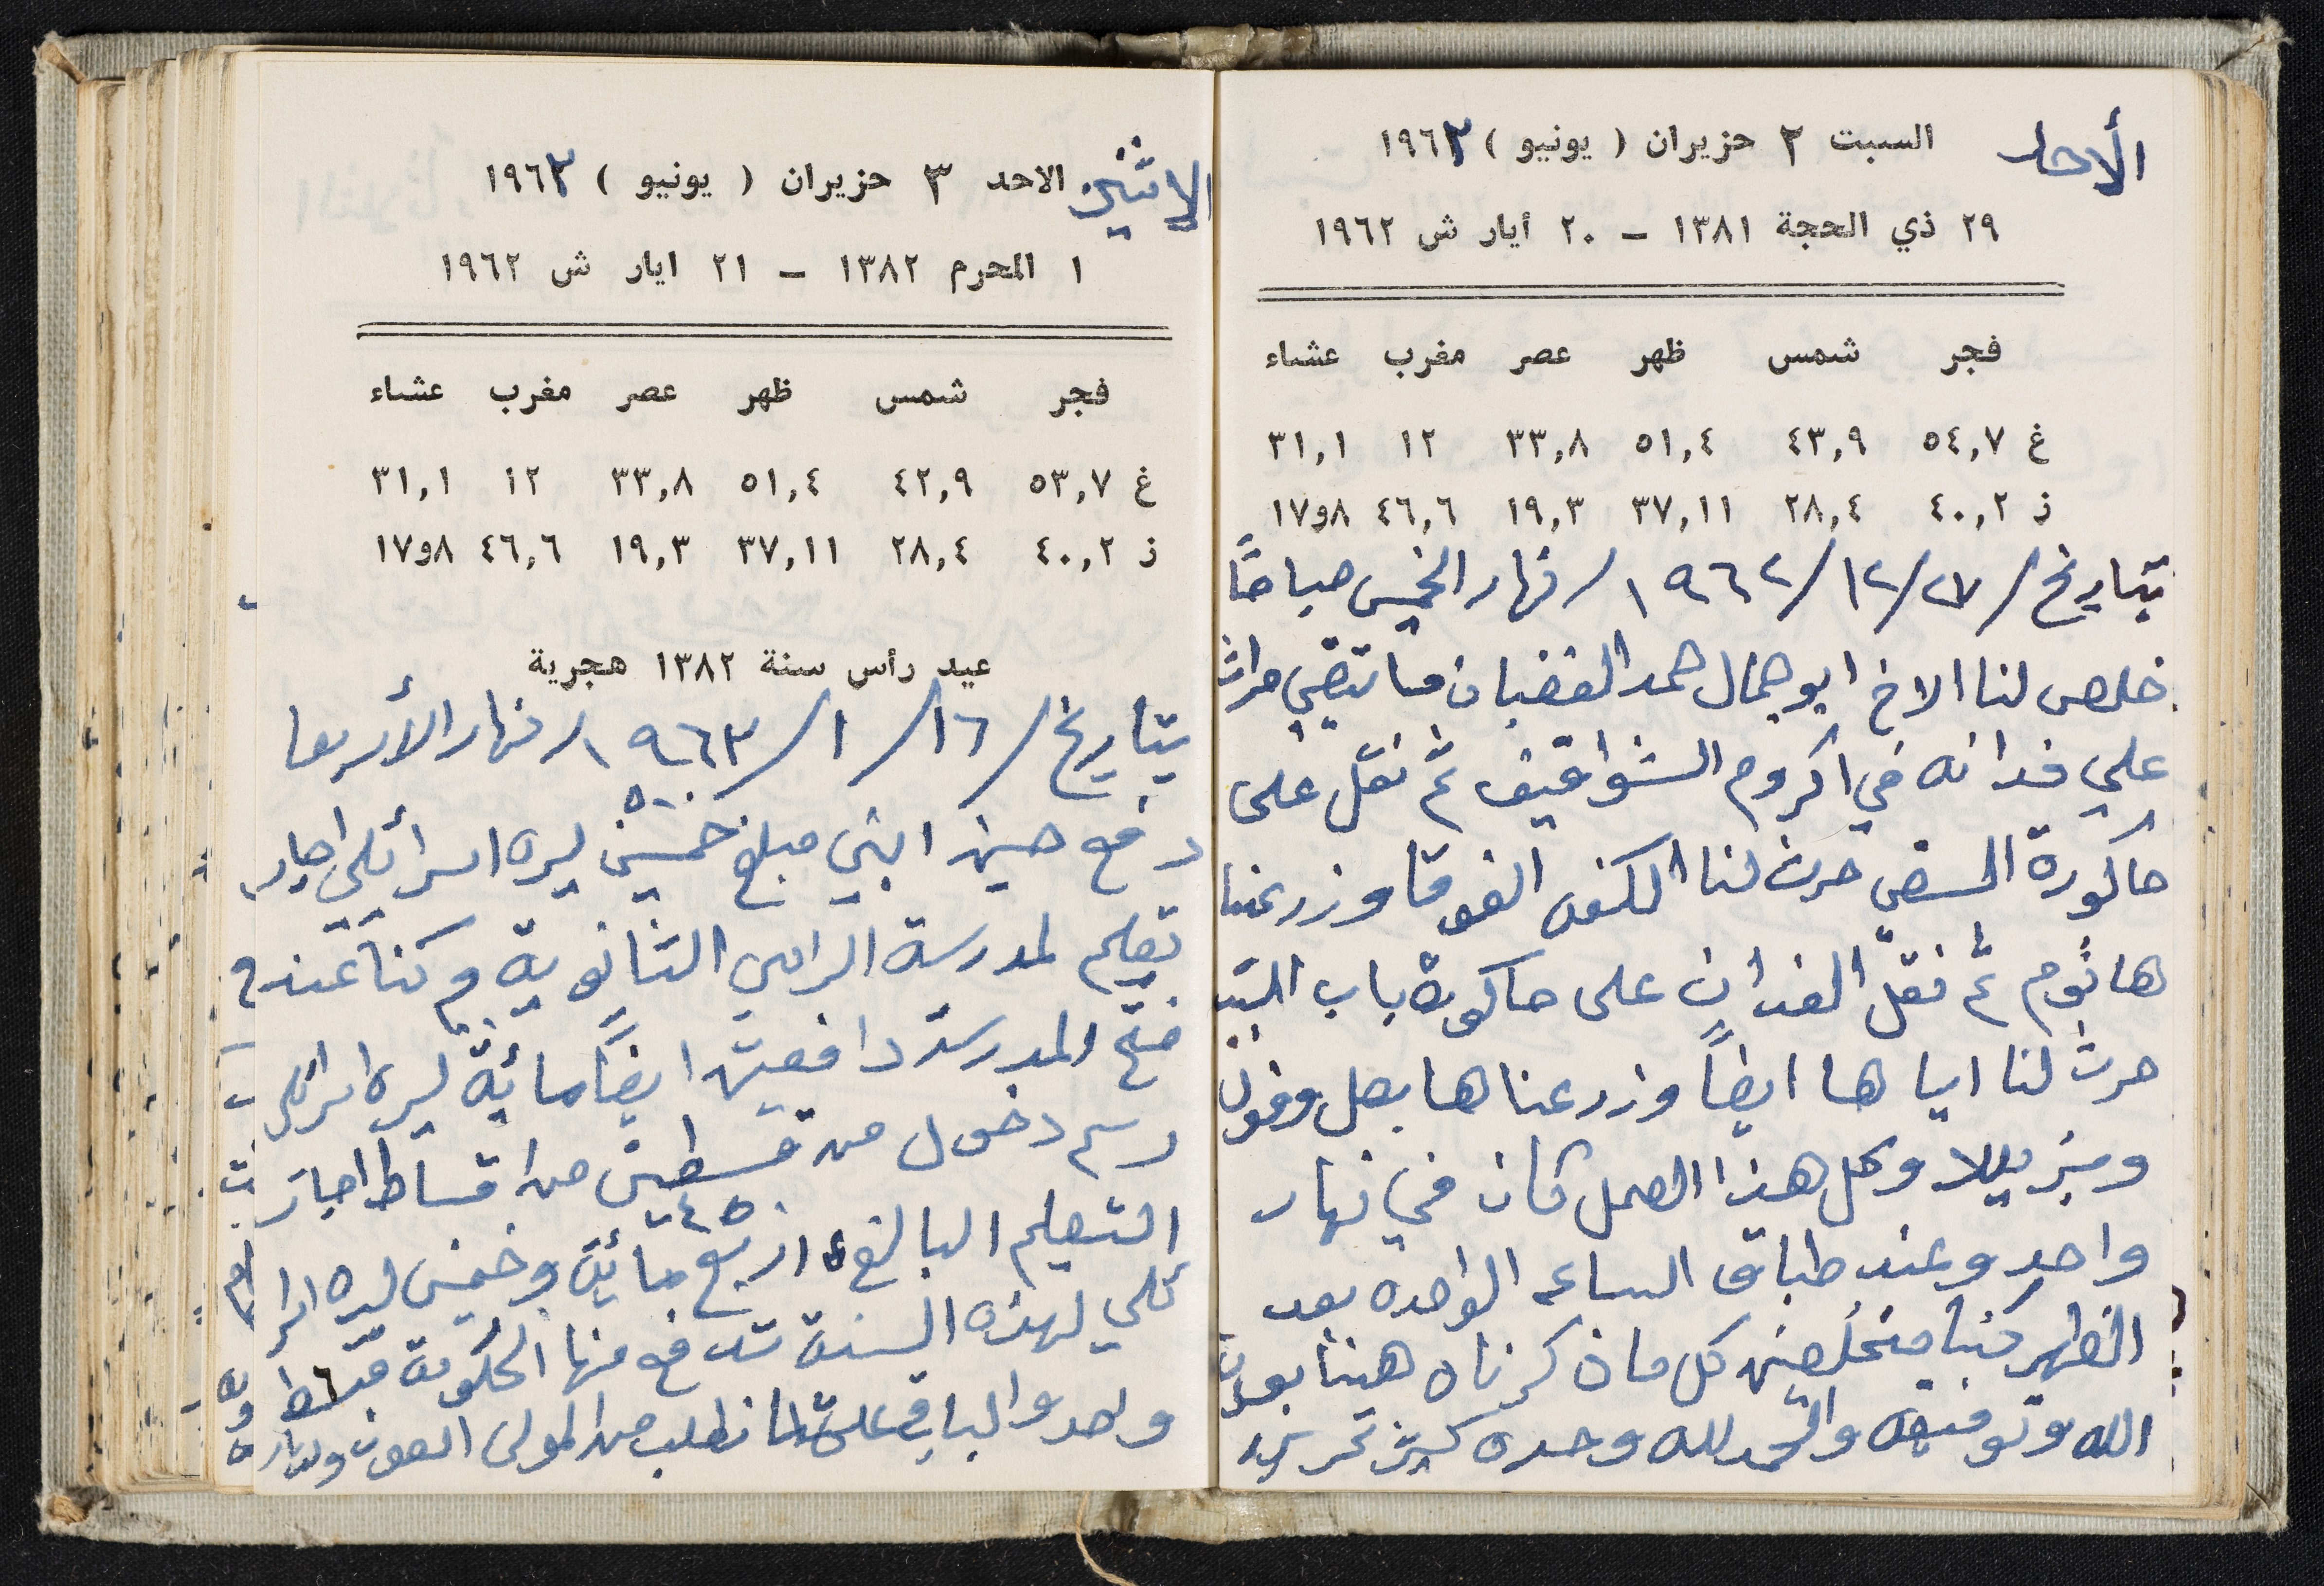 الأحد
السبت ٢ حزيران ( يونيو ) ١٩٦٣
٢٩ ذي الحجة ١٣٨١ - ٢٠ أيار ش ١٩٦٢
فجر شمس ظهر عصر مغرب عشاء
غ ٥٤,٧ ٤٣,٩ ٥١,٤ ٣٣,٨ ١٢ ٣١,١
ز ٤٠,٢ ٢٨,٤ ٣٧,١١ ١٩,٣ ٤٦,٦ ٨و١٧
بتاريخ / ٢٧/ ١٢/ ١٩٦٢/ نهار الخميس صباحًا
خلص لنا الاخ ابو جمال حمد الغضبان حراث
علي فدانه في اكروم الشواقيف ثم نقل على
حاكورة حرث لنا الفوقا وزرعنا
ها ثوم ثم نقل الفدان على حاكورة باب
حرث لنا اياها ايضاً وزرعناها بصل وفول
وبزيللا وكل هذا العمل كان في نهار
واحد وعند طباق الساعه الواحده بعد
الظهر كنا مخلصين كل ما ذكرناه هنا بعون
الله وتوفيقه والحمد لله وحده
الاثنين
الاحد ٣ حزيران ( يونيو ) ١٩٦٣
١ المحرم ١٣٨٢ - ٢١ ايار ش ١٩٦٢
فجر شمس ظهر عصر مغرب عشاء
غ ٥٣,٧ ٤٢,٩ ٥١,٤ ٣٣,٨ ١٢ ٣١,١
ز ٤٠,٢ ٢٨,٤ ٣٧,١١ ١٩,٣ ٤٦,٦ ٨و١٧
عيد رأس سنة ١٣٨٢ هجرية
بتاريخ / ١٦/ ١/ ١٩٦٣/ نهار الأربعا
دفع ابني مبلغ خمسين ليره اسرائيلي اجار
تعليم لمدرسة الرامي الثانوية وكنا عند
فتح المدرسة دافعين ايضًا مائة ليره
رسم دخول من قسطين من اقساط اجار
٤٥٠
التعليم البالغ اربع مائة وخمسين ليره
لهذه السنة تدفع منها الحكومة قسط
واحد والباقي نطلب من المولى العون